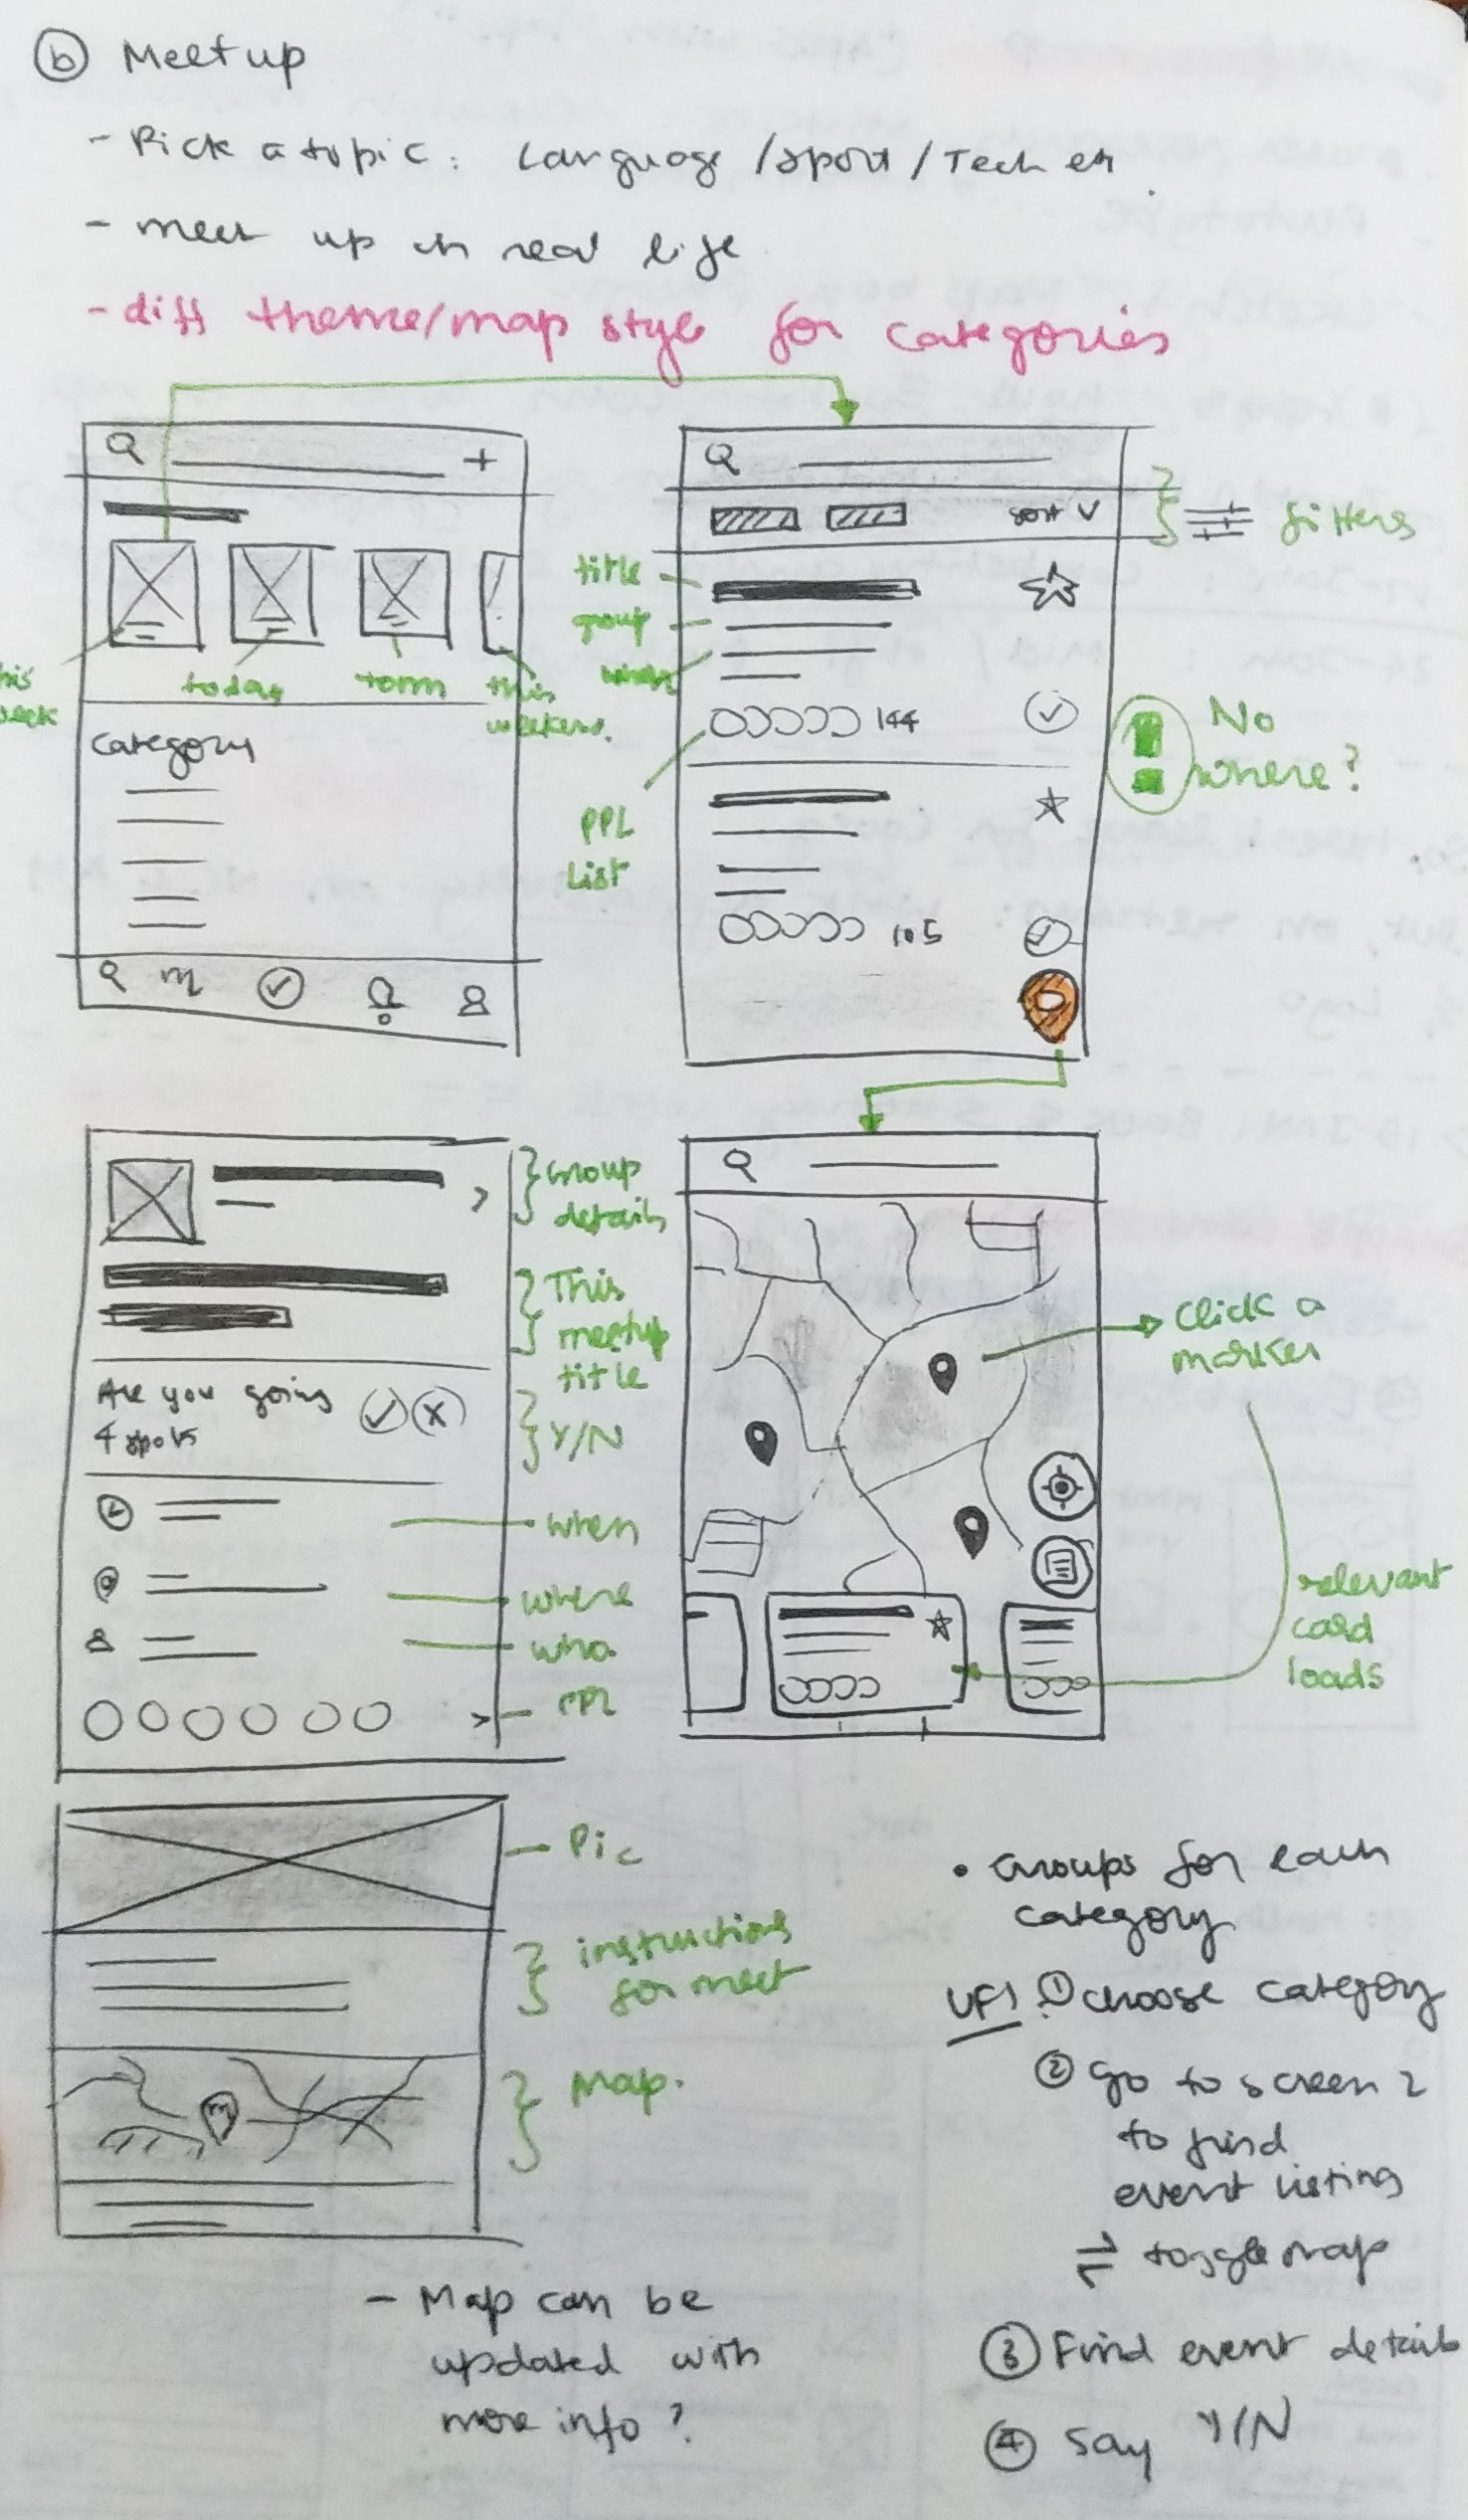 b Meetup
- Pick a topic: Language / Sport / Tech etc.
- meet up in real life
- diff theme/map style for categories
sort
filters
title
group
when
144
PPL
List
No
where?
105
this
week
today
tomm
this
weekend.
Category
Group
details
This
meetup
title
Are you going
4 spots
Y/N
when
where
who
PPL
click a
marker
relevant
card
loads
Pic
instructions
for meet
Map.
- Map can be
updated with
more info?
• Groups for each
category
UF1: ① choose category
② go to screen 2
to find
event listing
⇌ toggle map
③ Find event details
④ Say Y/N